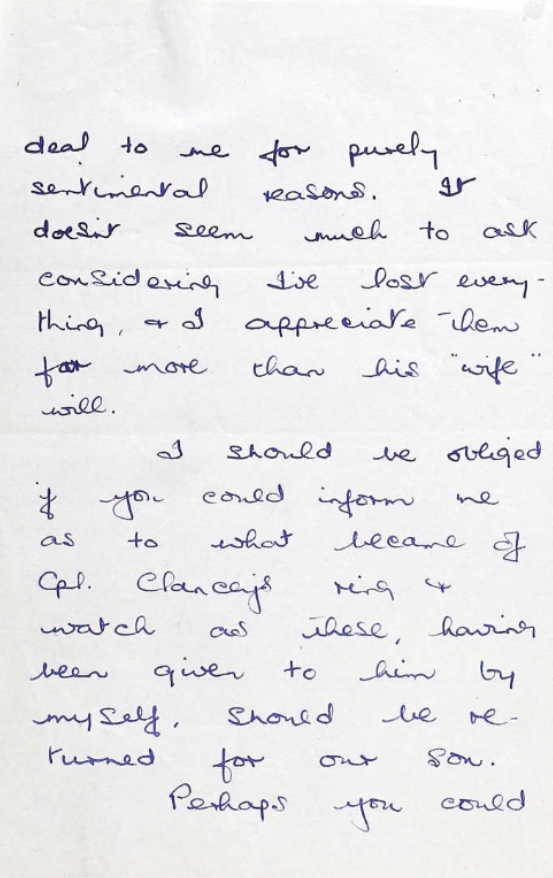 deal to me for purely
sentimental reasons. It
doesn't seem much to ask
considering I've lost every-
thing, & I appreciate them
far more than his "wife"
will.
I should be obliged
if you could inform me
as to what became of
Cpl. Clancey's ring &
watch as these, having
been given to him by
myself, should be re-
turned for our son.
Perhaps you could